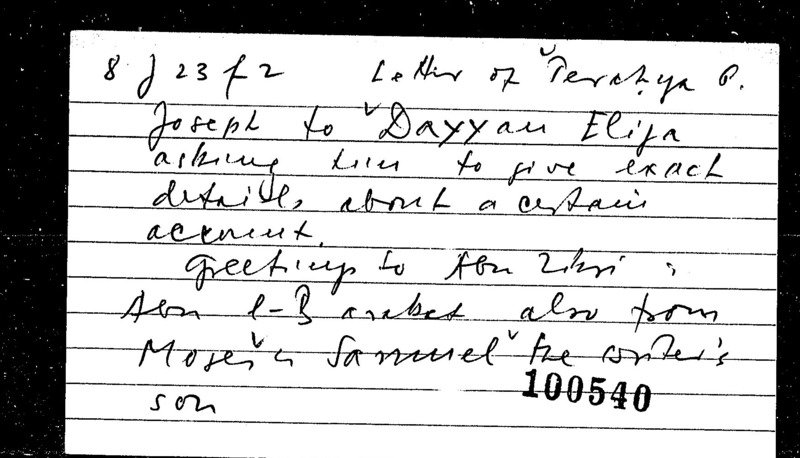 8 J 23 f 2 Letter of Perahya b.
Joseph to Dayyan Elija
asking him to give exact
details about a certain
account.
Greetings to Abu Zikri ;
Abu l-Barakat also from
Moses Samuel the writer's
son
100540